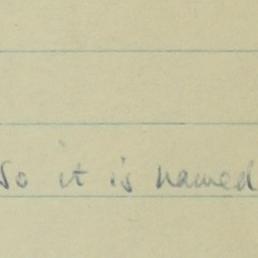 So it is named